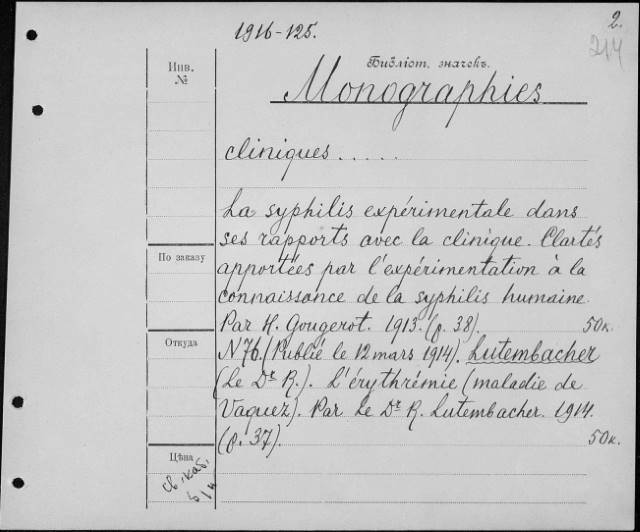 2.
1916-125.
214
Инв.
№
Библіот. значекъ.
Monographies
cliniques.....
La syphilis expérimentale dans
ses rapports avec la clinique. Clartés
По заказу
apportées par l'expérimentation à la
connaissance de la syphilis humaine.
Par H. Gougerot. 1913. (p. 38). 50к.
Откуда
N 76. (Publié le 12 mars 1914). Lutembacher
(Le Dr R.). L'érythrémie (maladie de
Vaquez). Par Le Dr R. Lutembacher. 1914.
(p. 37). 50к.
Цѣна
св. каб.